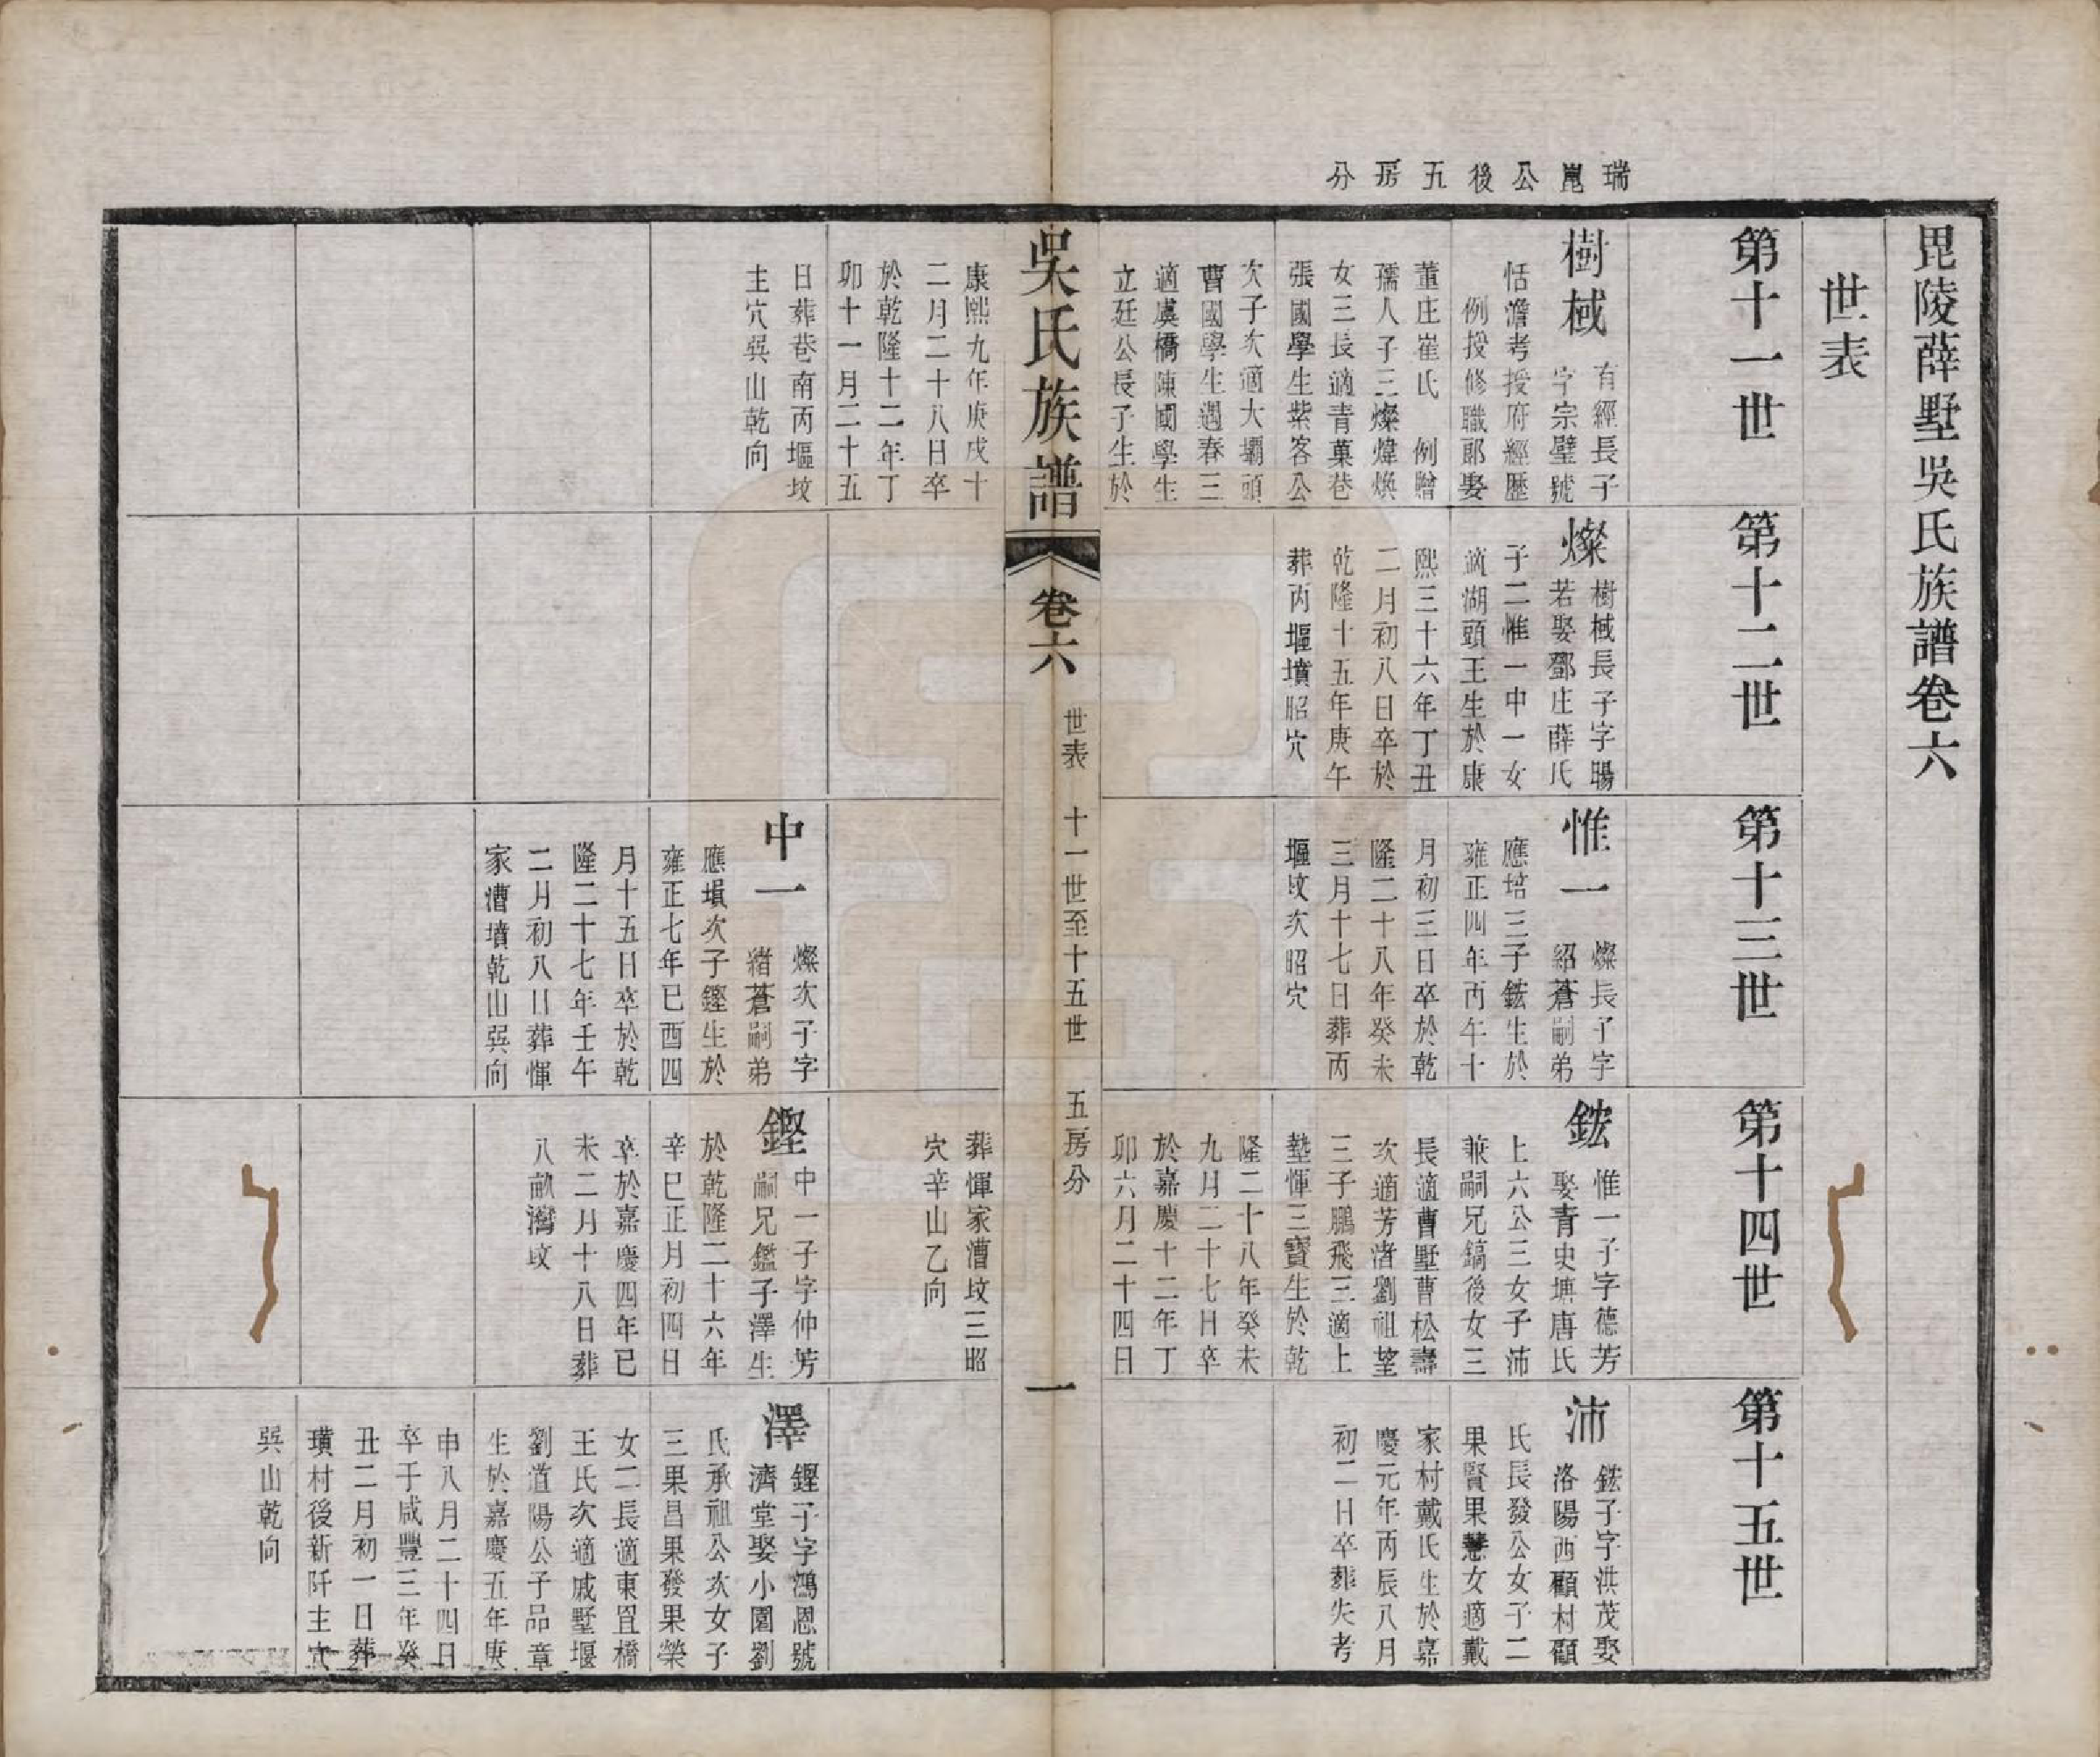 瑞崑公後五房分
毘陵薛墅吳氏族譜卷六
世表
第十一世
樹棫
有經長子
字宗璧號
恬澹考授府經歷
例授修職郎娶
董庄崔氏 例贈
孺人子三燦煒煥
女三長適青菓巷
張國學生紫客公
次子次適大壩頭
曹國學生遇春三
適虞橋陳國學生
立廷公長子生於
康熙九年庚戌十
二月二十八日卒
於乾隆十二年丁
卯十一月二十五
日葬巷南丙堰坟
主穴巽山乾向
第十二世
燦
樹棫長子字暘
若娶鄧庄薛氏
子二惟一中一女
適湖頭王生於康
熙三十六年丁丑
二月初八日卒於
乾隆十五年庚午
葬丙堰墳昭穴
第十三世
惟一
燦長子字
紹蒼嗣弟
應培三子鋐生於
雍正四年丙午十
月初三日卒於乾
隆二十八年癸未
三月十七日葬丙
堰坟次昭穴
中一
燦次子字
緒蒼嗣弟
應塤次子鏗生於
雍正七年已酉四
月十五日卒於乾
隆二十七年壬午
二月初八日葬惲
家漕墳乾山巽向
第十四世
鋐
惟一子字德芳
娶青史塘唐氏
上六公三女子沛
兼嗣兄鎬後女三
長適曹墅曹松壽
次適芳渚劉祖望
三子鵬飛三適上
塾惲三寶生於乾
隆二十八年癸未
九月二十七日卒
於嘉慶十二年丁
卯六月二十四日
葬惲家漕坟三昭
穴辛山乙向
鏗
中一子字仲芳
嗣兄鑑子澤生
於乾隆二十六年
辛巳正月初四日
卒於嘉慶四年已
未二月十八日葬
八畝灣坟
第十五世
沛
鋐子字洪茂娶
洛陽西顧村顧
氏長發公女子二
果賢果慧女適戴
家村戴氏生於嘉
慶元年丙辰八月
初二日卒葬失考
澤
鏗子字鴻恩號
濟堂娶小園劉
氏承祖公次女子
三果昌果發果榮
女二長適東罝橋
王氏次適戚墅堰
劉道陽公子品章
生於嘉慶五年庚
申八月二十四日
卒于咸豐三年癸
丑二月初一日葬
璜村後新阡主穴
巽山乾向
吳氏族譜
卷六
世表 十一世至十五世 五房分
一